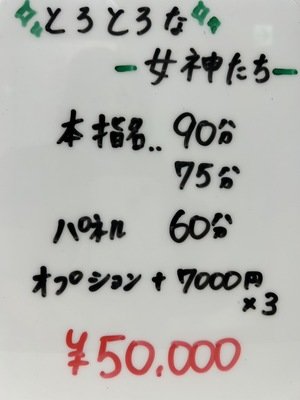 とろとろな
ー女神たちー
本指名.. 90分
75分
パネル 60分
オプション + 7000円
×3
¥50.000